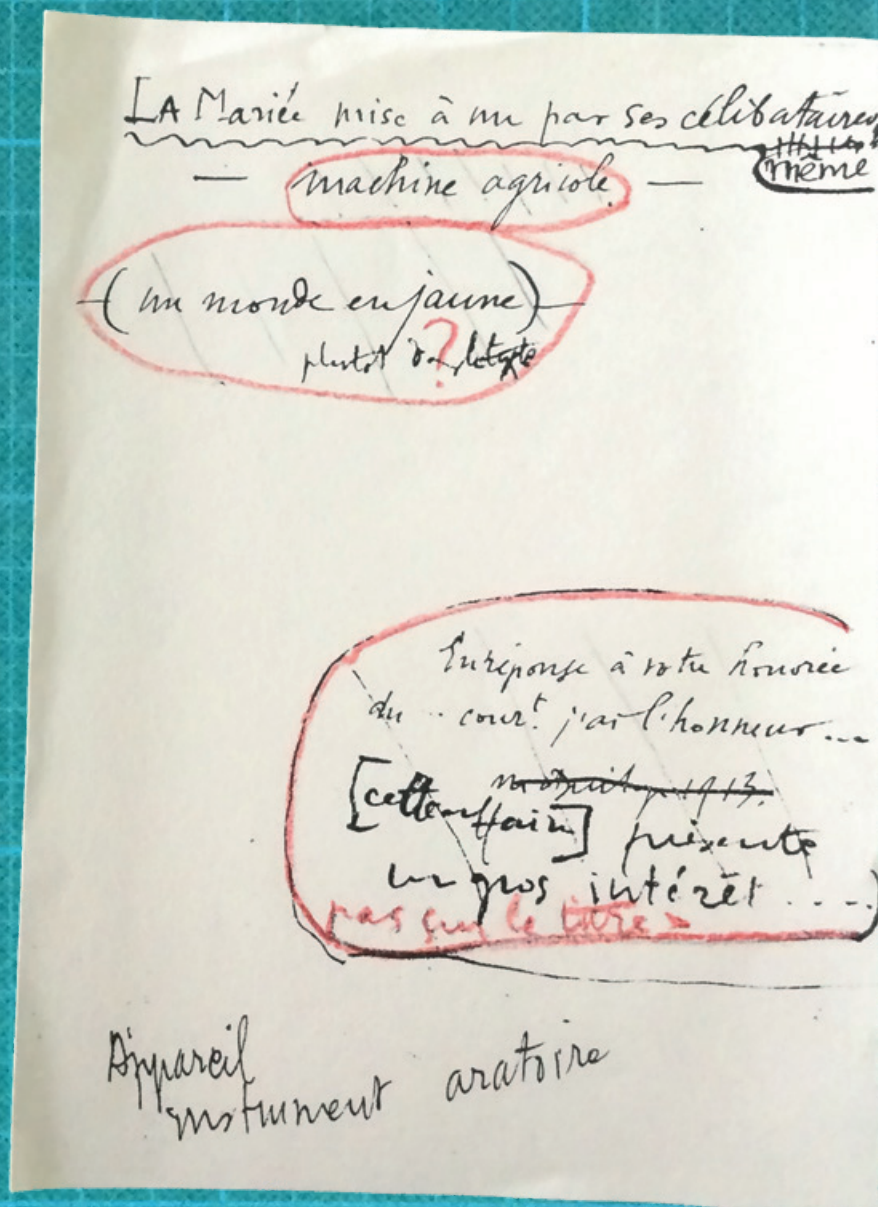 LA Mariée mise à nu par ses célibataires
même
— machine agricole —
(un monde en jaune)
?
plutôt dans le texte
En réponse à votre honorée
du .. cour.t j'ai l'honneur...
1913.
[cette affaire] présente
un gros intérêt ....)
pas sur le titre
Appareil
instrument aratoire